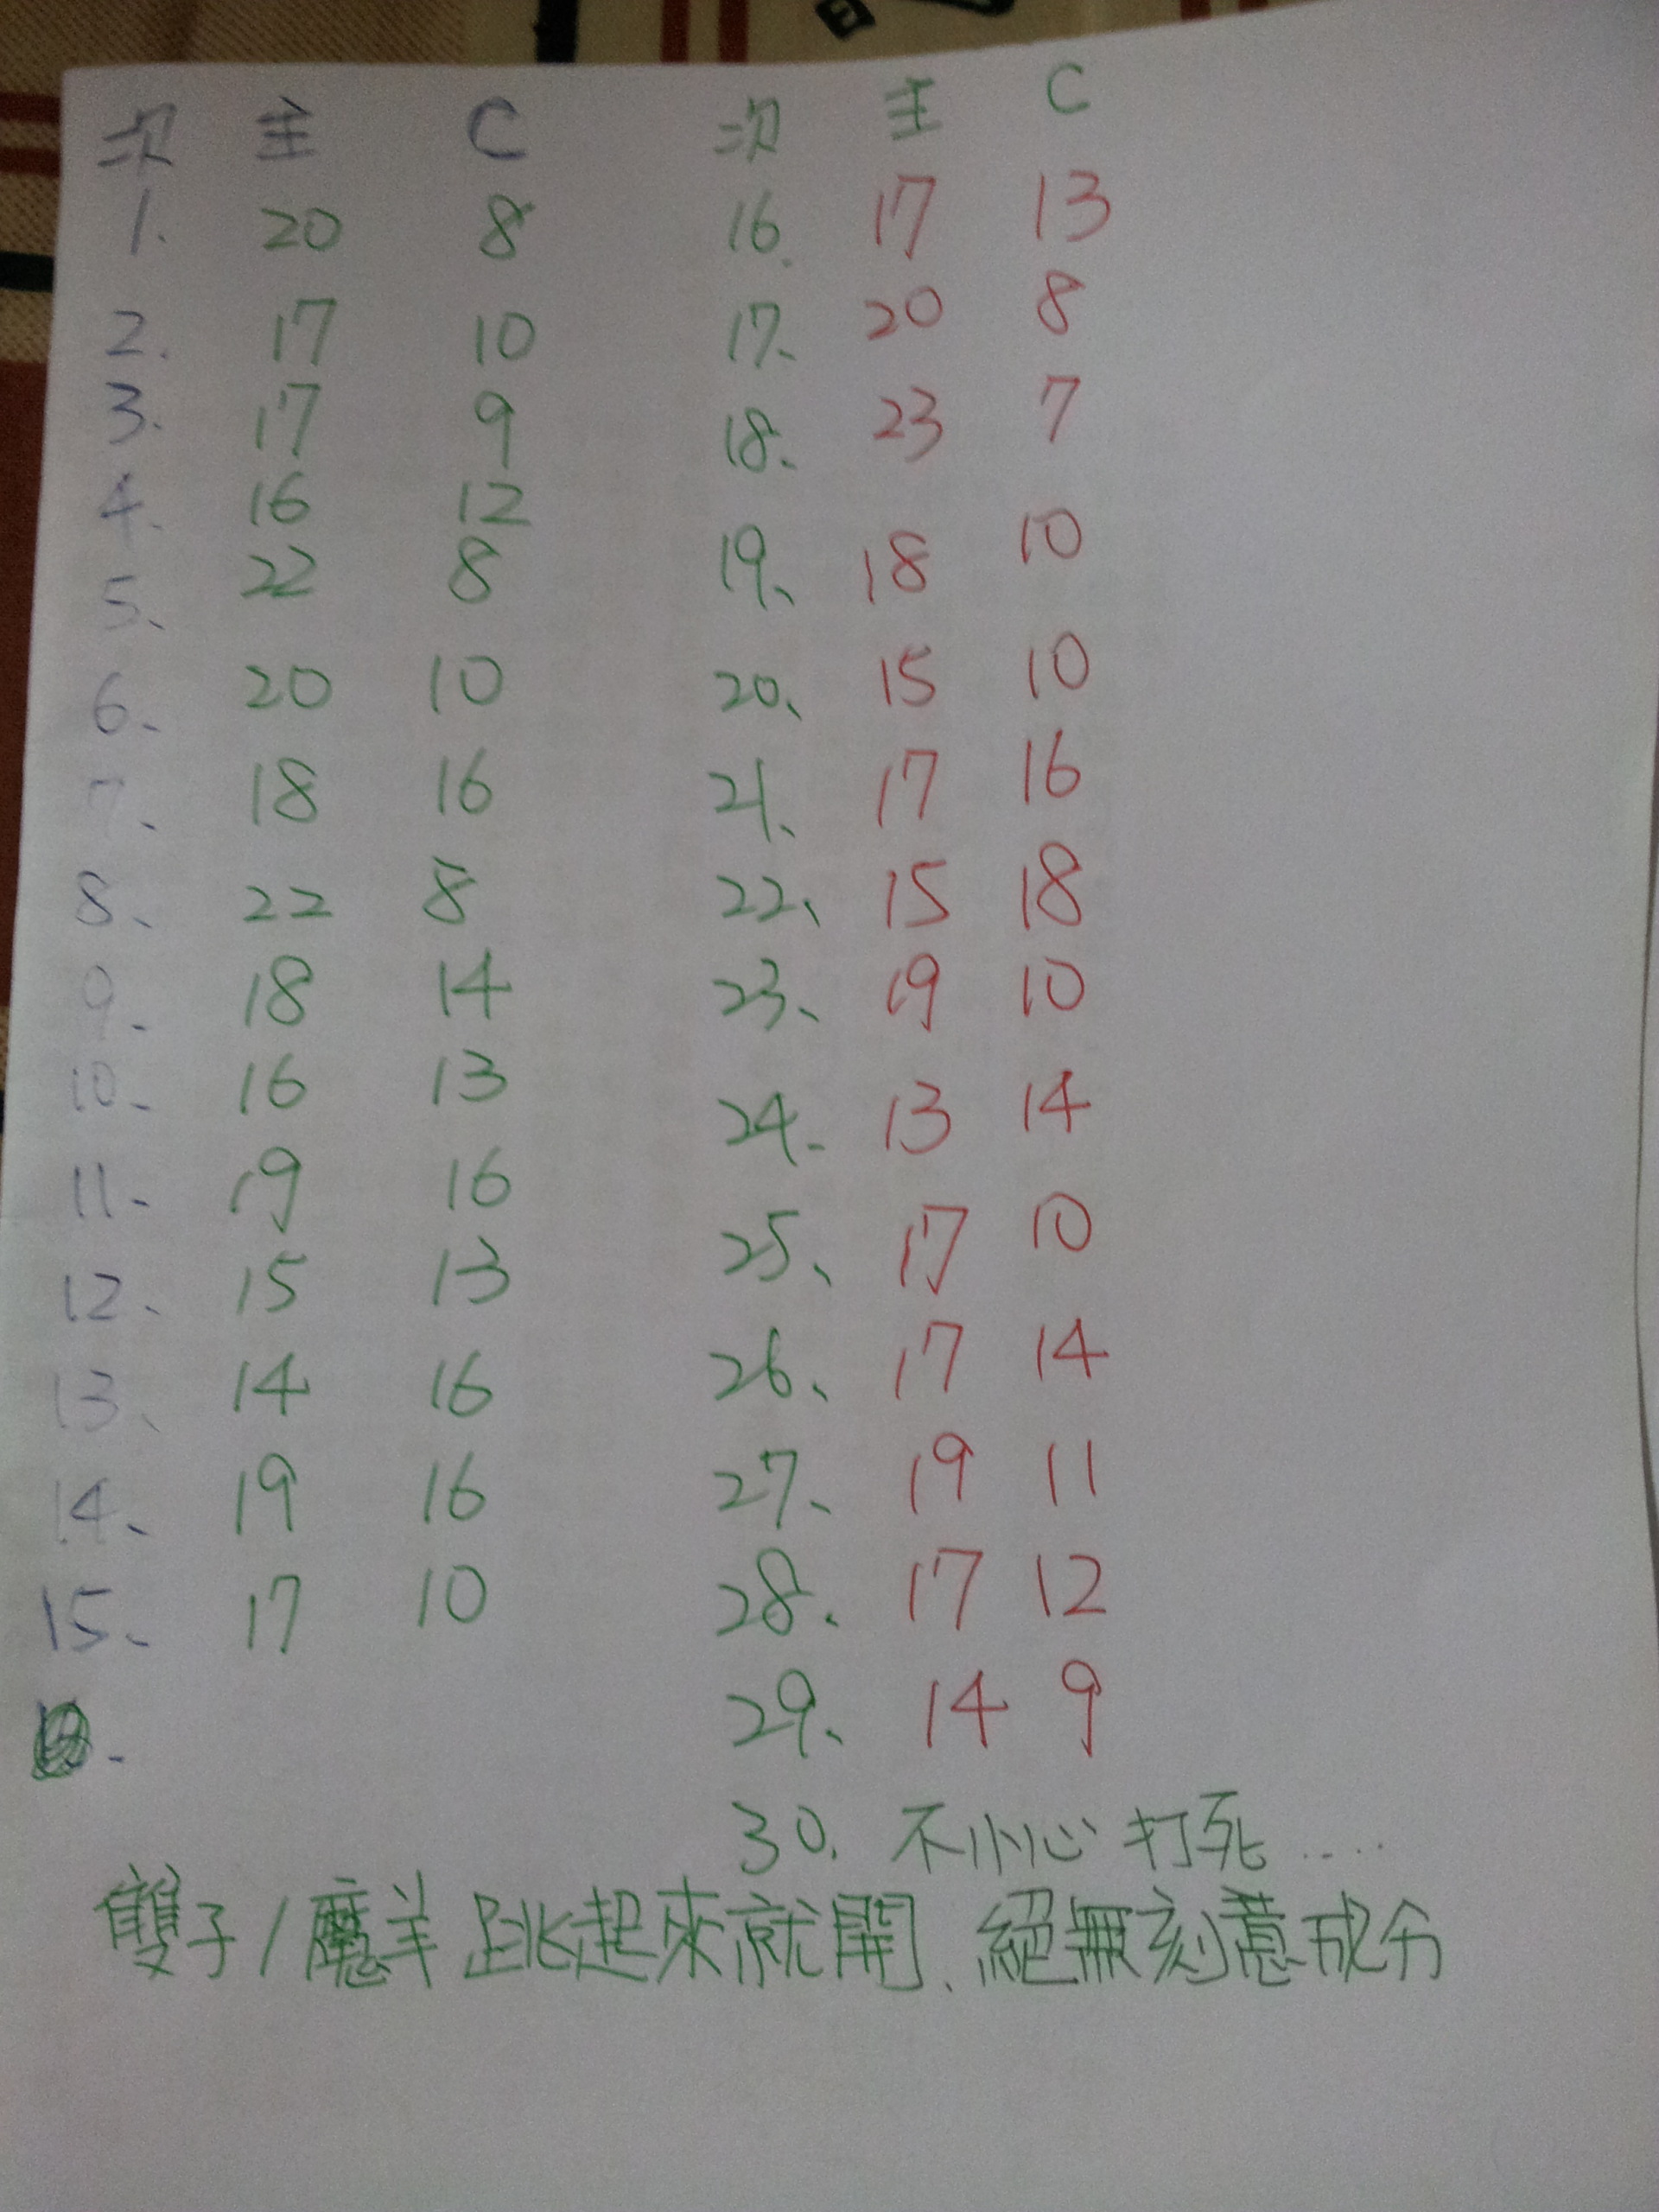 次 主 C
1. 20 8
2. 17 10
3. 17 9
4. 16 12
5、 22 8
6、 20 10
7、 18 16
8、 22 8
9、 18 14
10、 16 13
11、 19 16
12、 15 13
13、 14 16
14、 19 16
15、 17 10
次 主 C
16. 17 13
17、 20 8
18、 23 7
19、 18 10
20、 15 10
21、 17 16
22、 15 18
23、 19 10
24、 13 14
25、 17 10
26、 17 14
27、 19 11
28、 17 12
29、 14 9
30. 不小心打死....
雙子/魔羊跳起來就開、絕無刻意成分